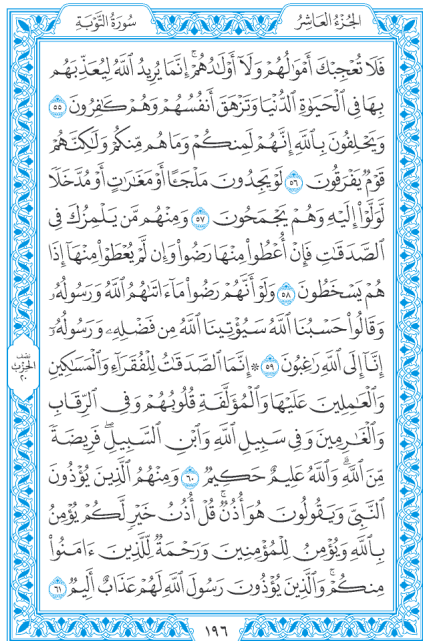 الجُزْءُ العَاشِرُ
سُورَةُ التَّوْبَةِ
فَلَا تُعْجِبْكَ أَمْوَٰلُهُمْ وَلَآ أَوْلَٰدُهُمْ ۚ إِنَّمَا يُرِيدُ ٱللَّهُ لِيُعَذِّبَهُم
بِهَا فِى ٱلْحَيَوٰةِ ٱلدُّنْيَا وَتَزْهَقَ أَنفُسُهُمْ وَهُمْ كَٰفِرُونَ ٥٥
وَيَحْلِفُونَ بِٱللَّهِ إِنَّهُمْ لَمِنكُمْ وَمَا هُم مِّنكُمْ وَلَٰكِنَّهُمْ
قَوْمٌ يَفْرَقُونَ ٥٦ لَوْ يَجِدُونَ مَلْجَـًٔا أَوْ مَغَٰرَٰتٍ أَوْ مُدَّخَلًا
لَّوَلَّوْا۟ إِلَيْهِ وَهُمْ يَجْمَحُونَ ٥٧ وَمِنْهُم مَّن يَلْمِزُكَ فِى
ٱلصَّدَقَٰتِ فَإِنْ أُعْطُوا۟ مِنْهَا رَضُوا۟ وَإِن لَّمْ يُعْطَوْا۟ مِنْهَآ إِذَا
هُمْ يَسْخَطُونَ ٥٨ وَلَوْ أَنَّهُمْ رَضُوا۟ مَآ ءَاتَىٰهُمُ ٱللَّهُ وَرَسُولُهُۥ
وَقَالُوا۟ حَسْبُنَا ٱللَّهُ سَيُؤْتِينَا ٱللَّهُ مِن فَضْلِهِۦ وَرَسُولُهُۥٓ
إِنَّآ إِلَى ٱللَّهِ رَٰغِبُونَ ٥٩ ۞ إِنَّمَا ٱلصَّدَقَٰتُ لِلْفُقَرَآءِ وَٱلْمَسَٰكِينِ
وَٱلْعَٰمِلِينَ عَلَيْهَا وَٱلْمُؤَلَّفَةِ قُلُوبُهُمْ وَفِى ٱلرِّقَابِ
وَٱلْغَٰرِمِينَ وَفِى سَبِيلِ ٱللَّهِ وَٱبْنِ ٱلسَّبِيلِ ۖ فَرِيضَةً
مِّنَ ٱللَّهِ ۗ وَٱللَّهُ عَلِيمٌ حَكِيمٌ ٦٠ وَمِنْهُمُ ٱلَّذِينَ يُؤْذُونَ
ٱلنَّبِىَّ وَيَقُولُونَ هُوَ أُذُنٌ ۚ قُلْ أُذُنُ خَيْرٍ لَّكُمْ يُؤْمِنُ
بِٱللَّهِ وَيُؤْمِنُ لِلْمُؤْمِنِينَ وَرَحْمَةٌ لِّلَّذِينَ ءَامَنُوا۟
مِنكُمْ ۚ وَٱلَّذِينَ يُؤْذُونَ رَسُولَ ٱللَّهِ لَهُمْ عَذَابٌ أَلِيمٌ ٦١
نصف
الحزب
٢٠
١٩٦